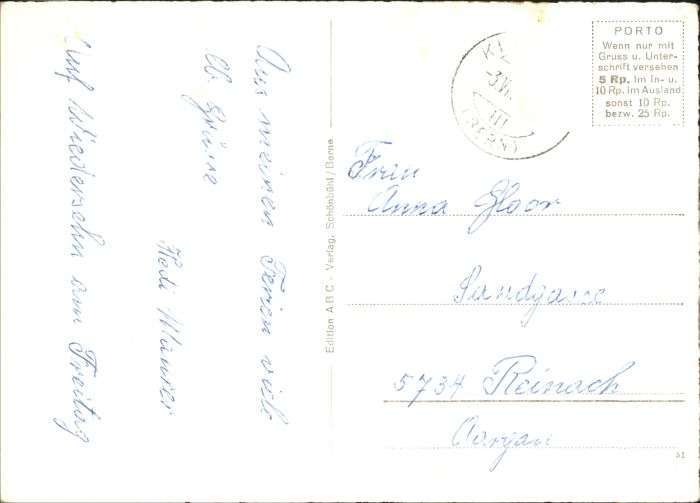 Aus meinen Ferien viele
lb. Grüsse
Hedi Maurer
Auf Wiedersehn am Freitag
Edition A B C - Verlag, Schönbühl / Berne
PORTO
Wenn nur mit
Gruss u. Unter-
schrift versehen
5 Rp. im In- u.
10 Rp. im Ausland
sonst 10 Rp.
bezw. 25 Rp.
(BERN)
Frau
Anna Gloor
Sandgasse
5734 Reinach
Aargau
51